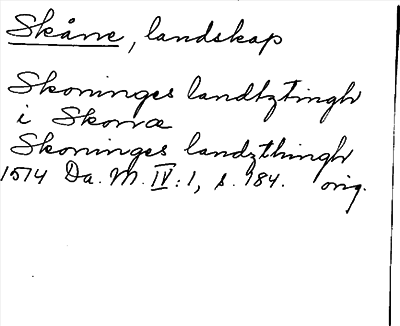 Skåne, landskap
Skoninges landtztingh
i Skonæ
Skoninges landzthingh
1514 Da. M. IV:1, s. 184. orig.